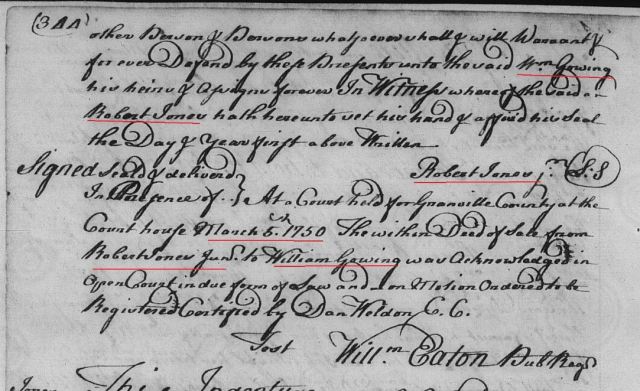 (344)
other Person & Persons whatsoever shall & will Warrant &
for ever Defend by these Presents unto the said Wm Gowing
his heirs & Assigns forever In Witness whereof the said
Robert Jones hath hereunto set his hand & affixd his Seal
the Day & Year first above Written
Signed Seald & delivered } Robert Jones jr L:S
In Presence of .. } At a Court held for Granville County at the
Court house March 5th 1750 The within Deed of Sale from
Robert Jones Junr. to William Gowing was Acknowledged in
Open Court in due form of Law and on Motion Ordered to be
Registered Certified by Dan Weldon C. C.
Test Willm Eaton Pub Regr
Jones This Indenture